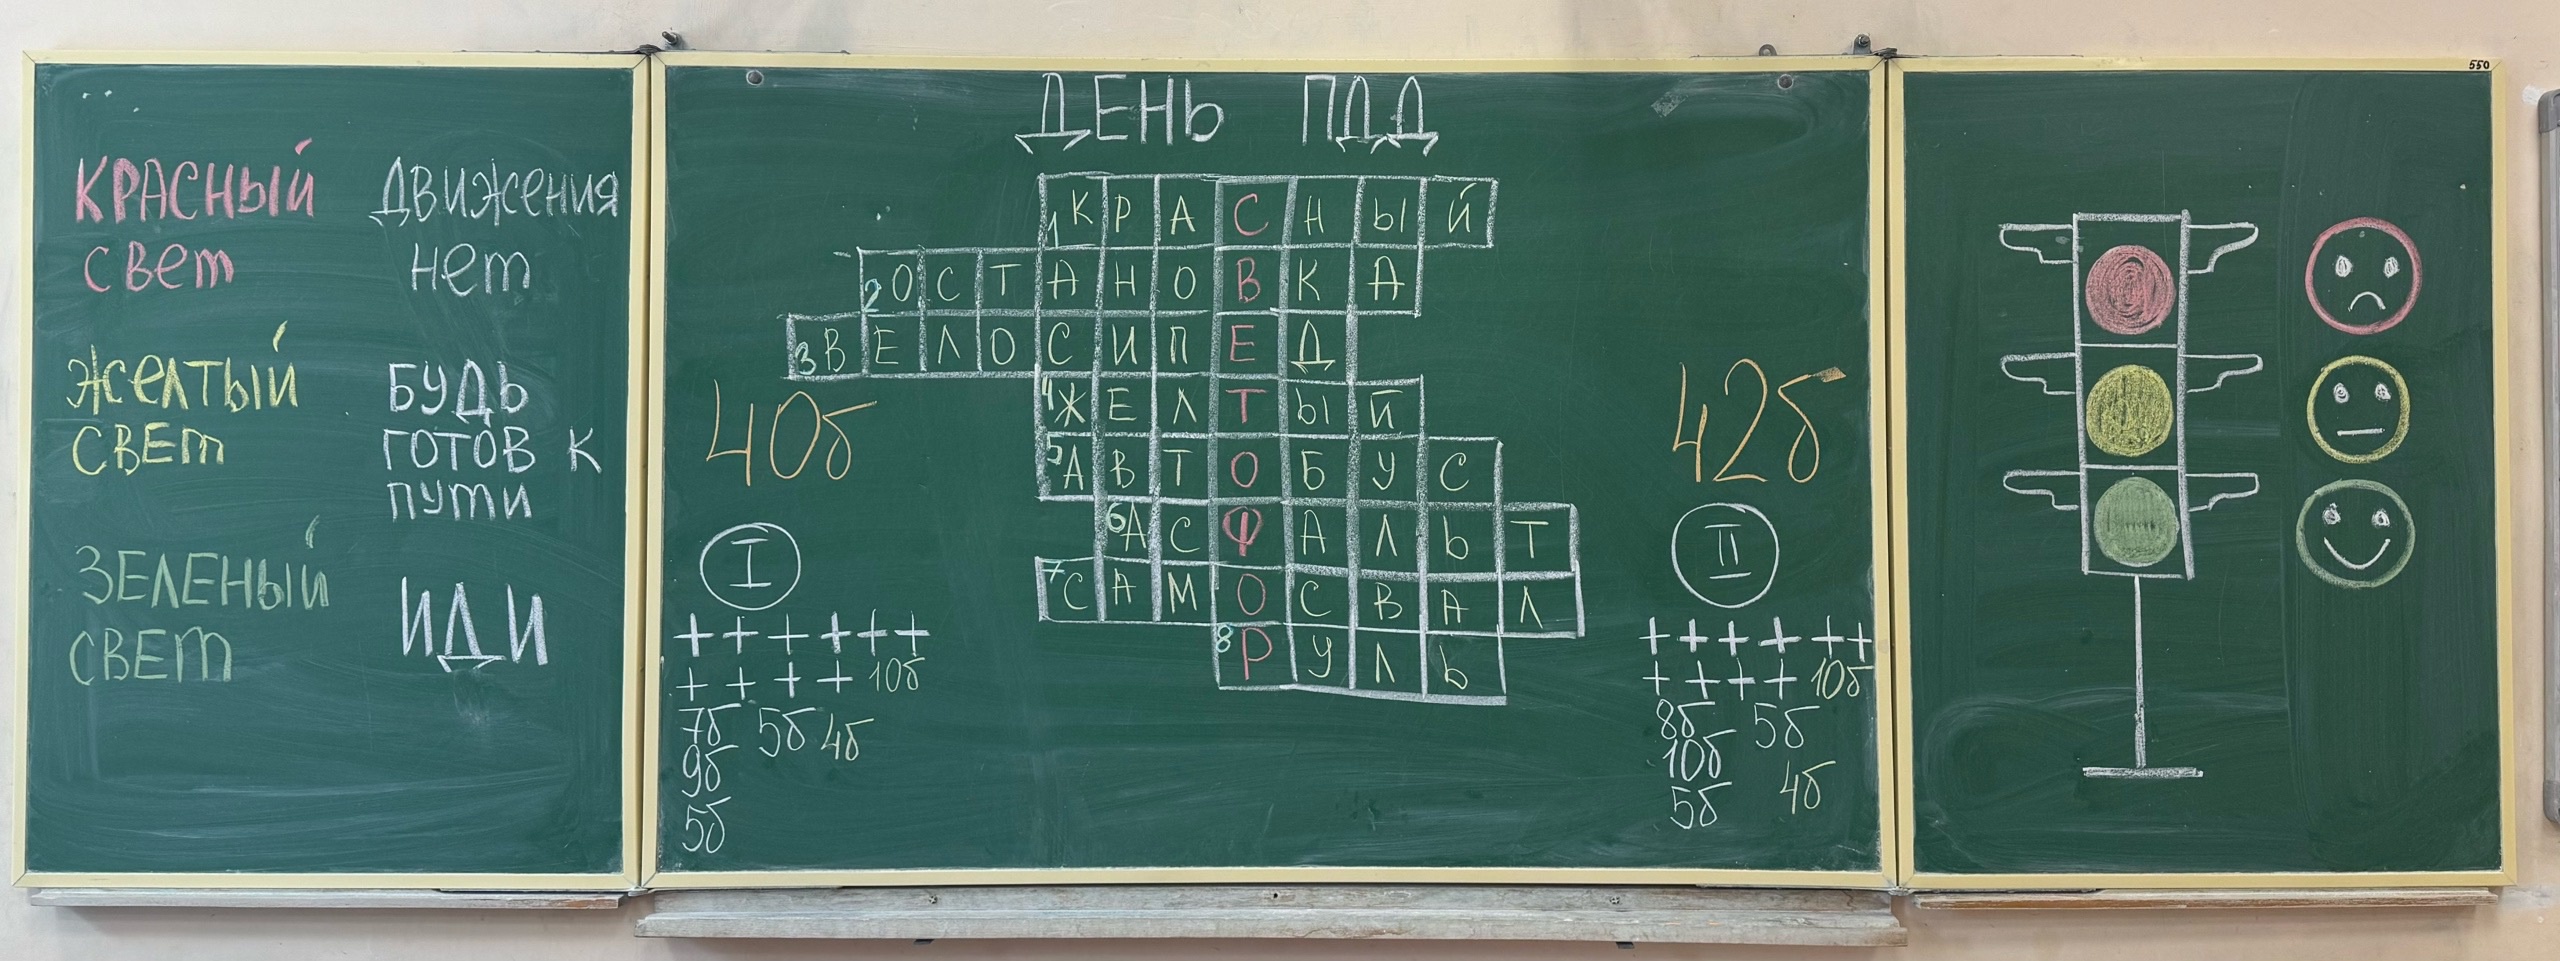 КРАСНЫЙ
СВЕТ
ДВИЖЕНИЯ
НЕТ
ЖЕЛТЫЙ
СВЕТ
БУДЬ
ГОТОВ К
ПУТИ
ЗЕЛЕНЫЙ
СВЕТ
ИДИ
ДЕНЬ ПДД
1 КРАСНЫЙ
2 ОСТАНОВКА
3 ВЕЛОСИПЕД
4 ЖЕЛТЫЙ
5 АВТОБУС
6 АСФАЛЬТ
7 САМОСВАЛ
8 РУЛЬ
40б
I
+ + + + + +
+ + + + 10б
7б 5б 4б
9б
5б
42б
II
+ + + + + +
+ + + + 10б
8б 5б
10б
5б 4б
550